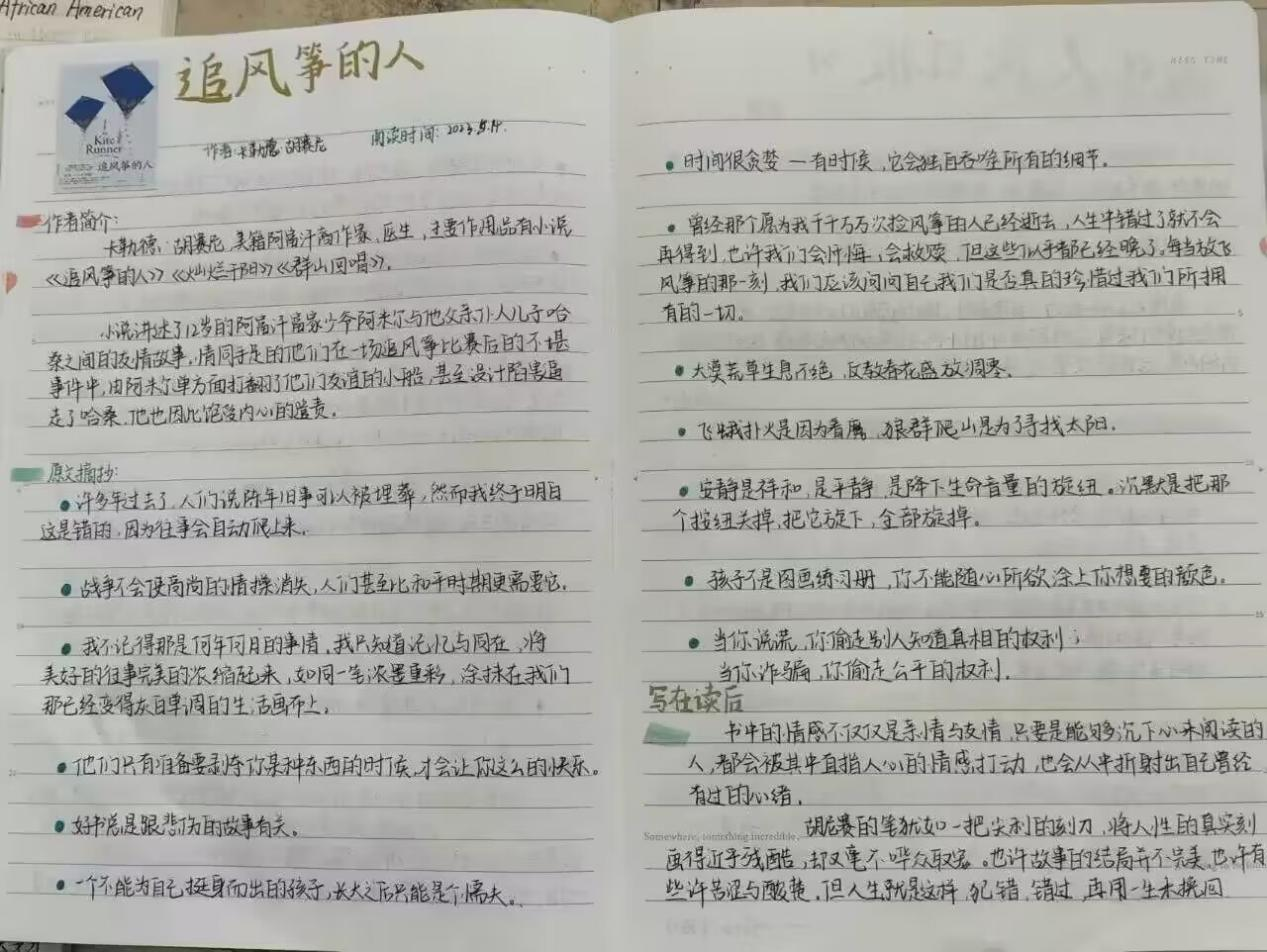 African American
追风筝的人
Kite
Runner
追风筝的人
作者:卡勒德·胡赛尼 阅读时间:2023.5.14.
作者简介:
卡勒德·胡赛尼,美籍阿富汗裔作家,医生,主要作用品有小说
《追风筝的人》《灿烂千阳》《群山回唱》.
小说讲述了12岁的阿富汗富家少爷阿米尔与他父亲仆人儿子哈
桑之间的友情故事,情同手足的他们在一场追风筝比赛后的不堪
事件中,由阿米尔单方面打翻了他们友谊的小船,甚至设计陷害逼
走了哈桑,他也因此饱受内心的谴责.
原文摘抄:
许多年过去了,人们说陈年旧事可以被埋葬,然而我终于明白
这是错的,因为往事会自动爬上来.
战争不会使高尚的情操消失,人们甚至比和平时期更需要它.
我不记得那是何年何月的事情,我只知道记忆与同在,将
美好的往事完美的浓缩起来,如同一笔浓墨重彩,涂抹在我们
那已经变得灰白单调的生活画布上.
他们只有准备要剥夺你某种东西的时候,才会让你这么的快乐。
好书总是跟悲伤的故事有关。
一个不能为自己挺身而出的孩子,长大之后只能是个懦夫。
时间很贪婪一有时候,它会独自吞噬所有的细节.
曾经那个愿为我千千万万次捡风筝的人已经逝去,人生中错过了就不会
再得到,也许我们会忏悔,会救赎,但这些似乎都已经晚了.每当放飞
风筝的那一刻,我们应该问问自己我们是否真的珍惜过我们所拥
有的一切.
大漠荒草生息不绝,反教春花盛放凋零.
飞蛾扑火是因为眷属,狼群爬山是为了寻找太阳.
安静是祥和,是平静,是降下生命音量的旋钮。沉默是把那
个按钮关掉,把它旋下,全部旋掉。
孩子不是图画练习册,你不能随心所欲涂上你想要的颜色.
当你说谎,你偷走别人知道真相的权利;
当你诈骗,你偷走公平的权利.
写在读后
书中的情感不仅仅是亲情与友情,只要是能够沉下心来阅读的
人,都会被其中直指人心的情感打动,也会从中折射出自己曾经
有过的心绪.
Somewhere, something incredible
胡尼赛的笔犹如一把尖利的刻刀,将人性的真实刻
画得近乎残酷,却又毫不哗众取宠。也许故事的结局并不完美,也许有
些许苦涩与酸楚,但人生就是这样,犯错,错过,再用一生来挽回